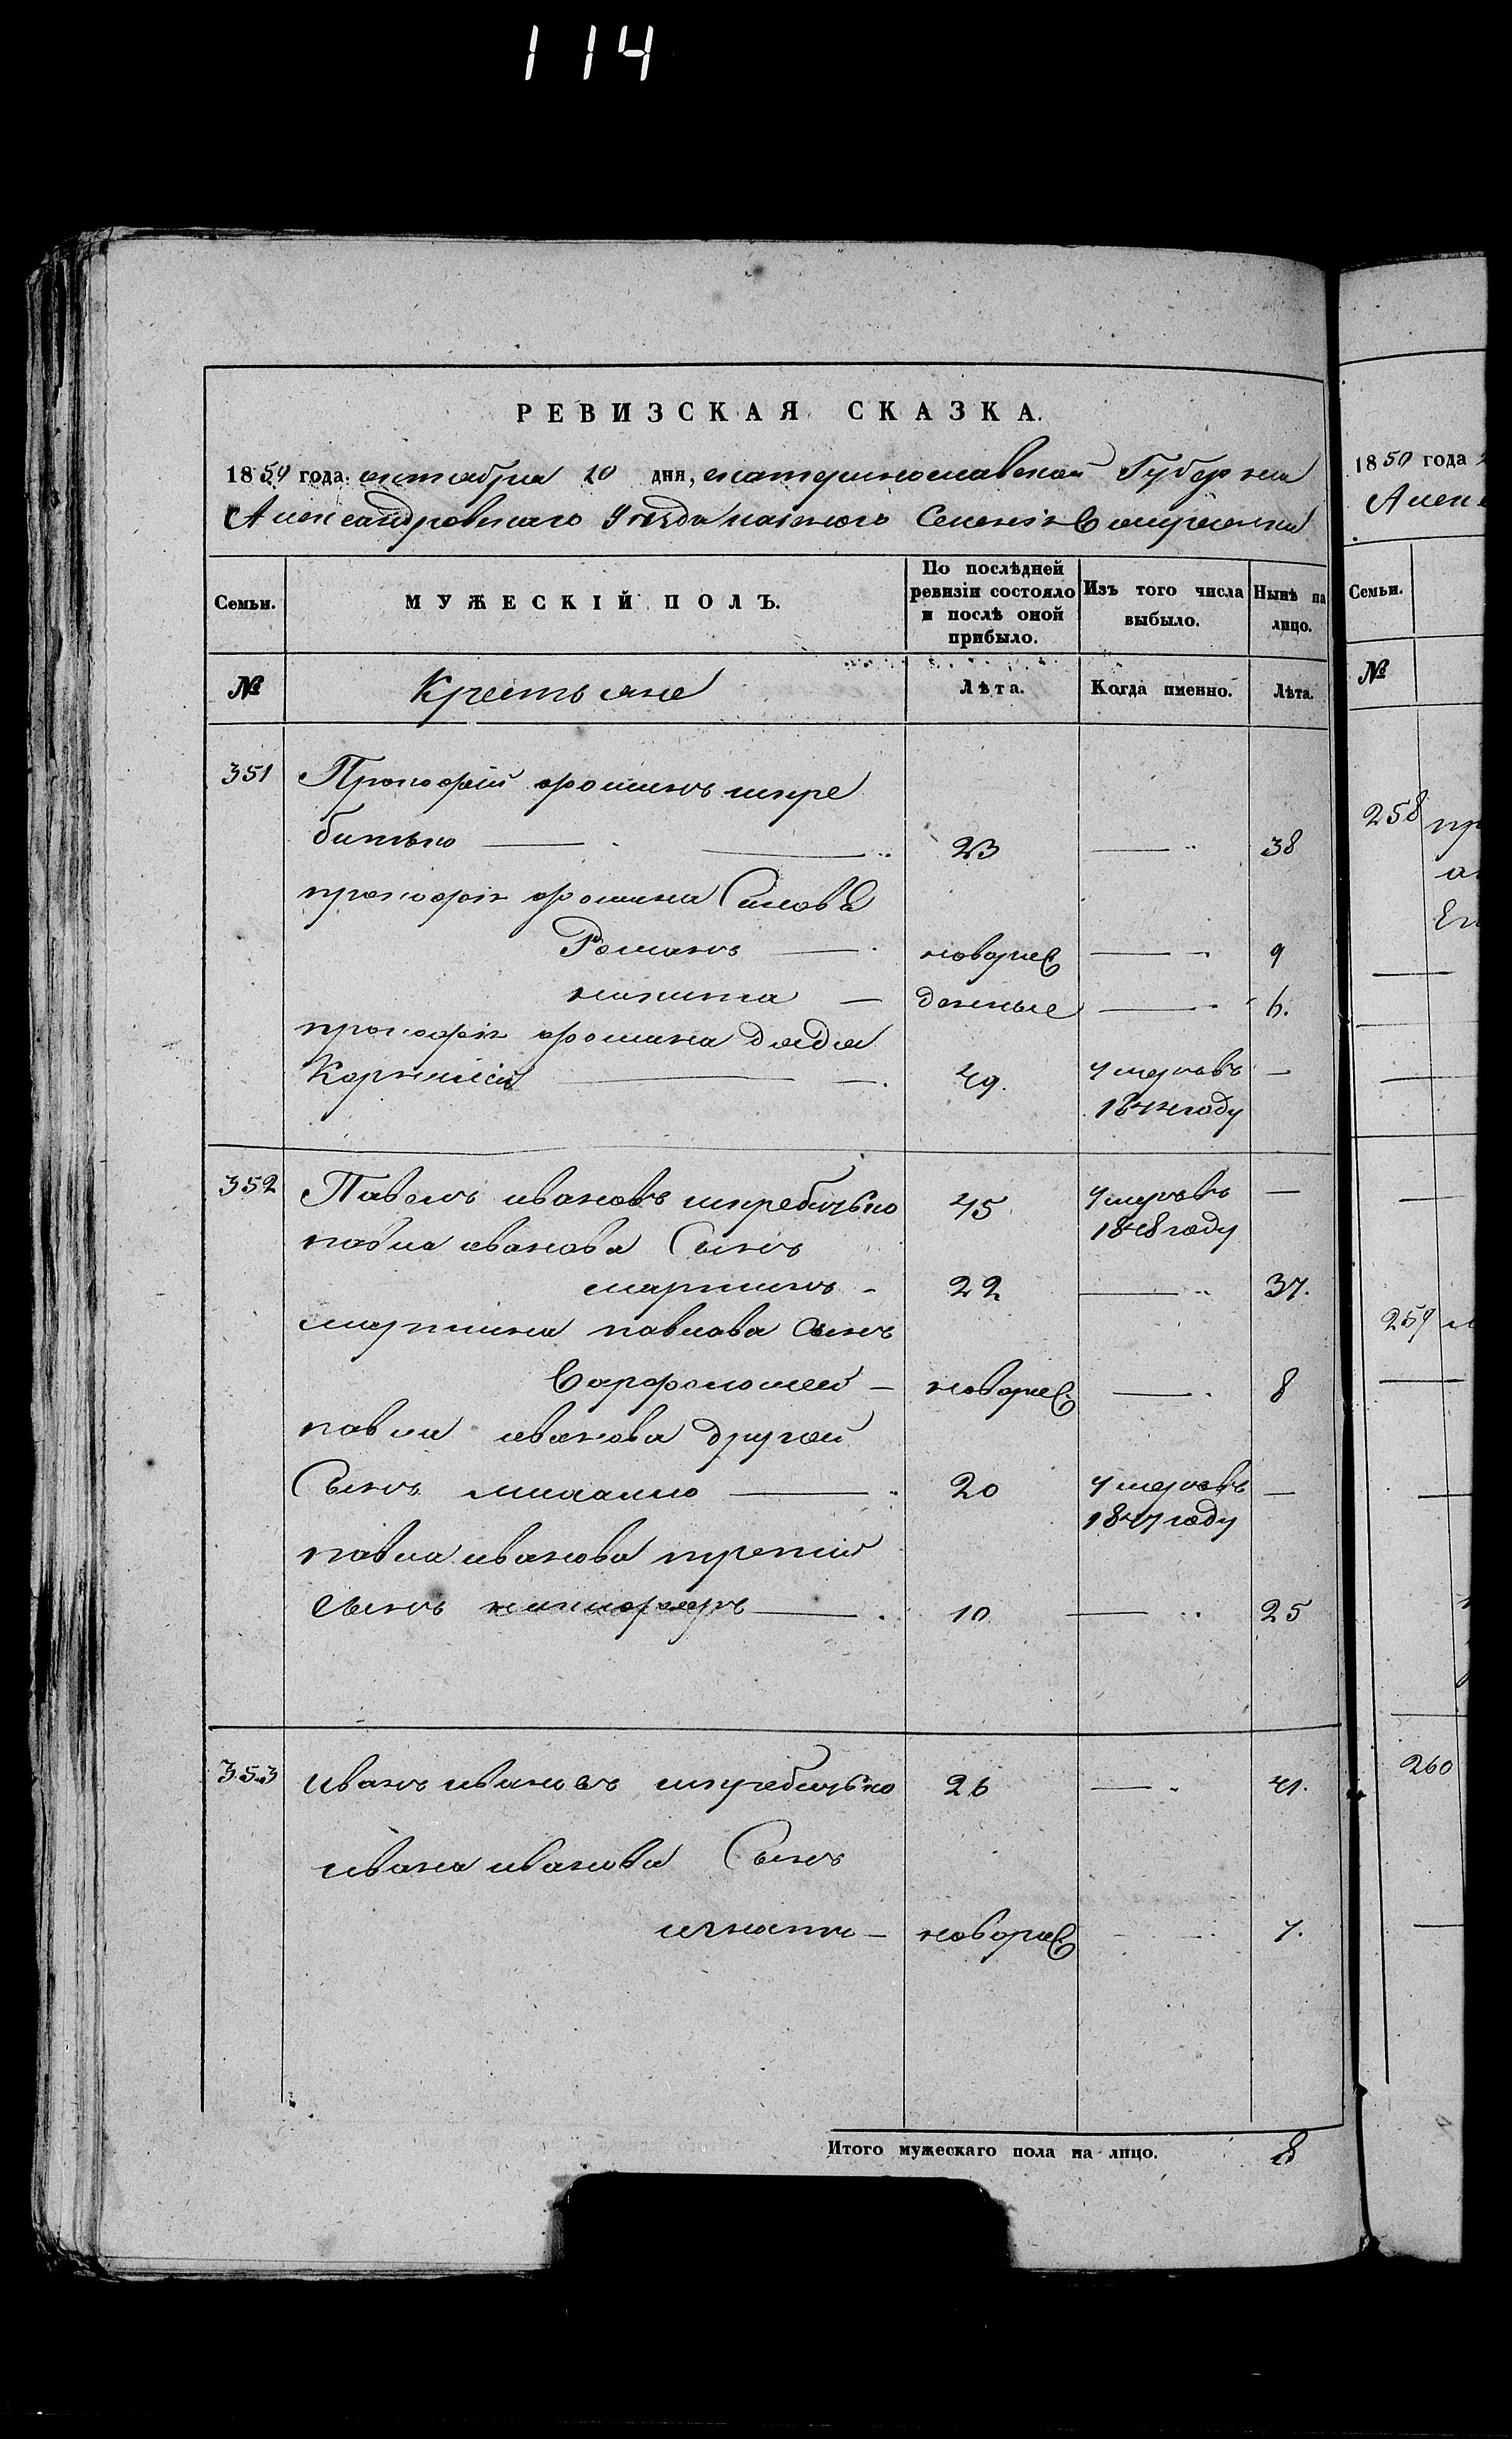 114
РЕВИЗСКАЯ СКАЗКА.
1850 года октября 10 дня, екатеринославской Губернии
Александровскаго Уезда казеннаго Селения
Семьи. МУЖЕСКІЙ ПОЛЪ. По послѣдней ревизіи состояло и послѣ оной прибыло. Изъ того числа выбыло. Нынѣ на лицо.
№ Крестьяне Лѣта. Когда именно. Лѣта.
351 Прокофій фоминъ шкре
битько 23 38
прокофія фомина Синовья
Романъ новорож 9
никита денные 6.
прокофія фомина дядя
Корнилій 49. умеръ въ —
1844 году
352 Павелъ ивановъ шкребитько 45 умеръ въ —
1848 году
павла иванова Сынъ
мартинъ 22 37.
мартина павлова Сынъ
Варфоломей новорож. 8
павла иванова другой
Сынъ михайло 20 умеръ въ —
1847 году
павла иванова третий
Сынъ никифоръ 10 25
353 иванъ ивановъ шкребитько 26 41.
ивана иванова Сынъ
игнатъ новорож 7.
Итого мужескаго пола на лицо. 8
1850 года
Семьи.
№
258
259
260